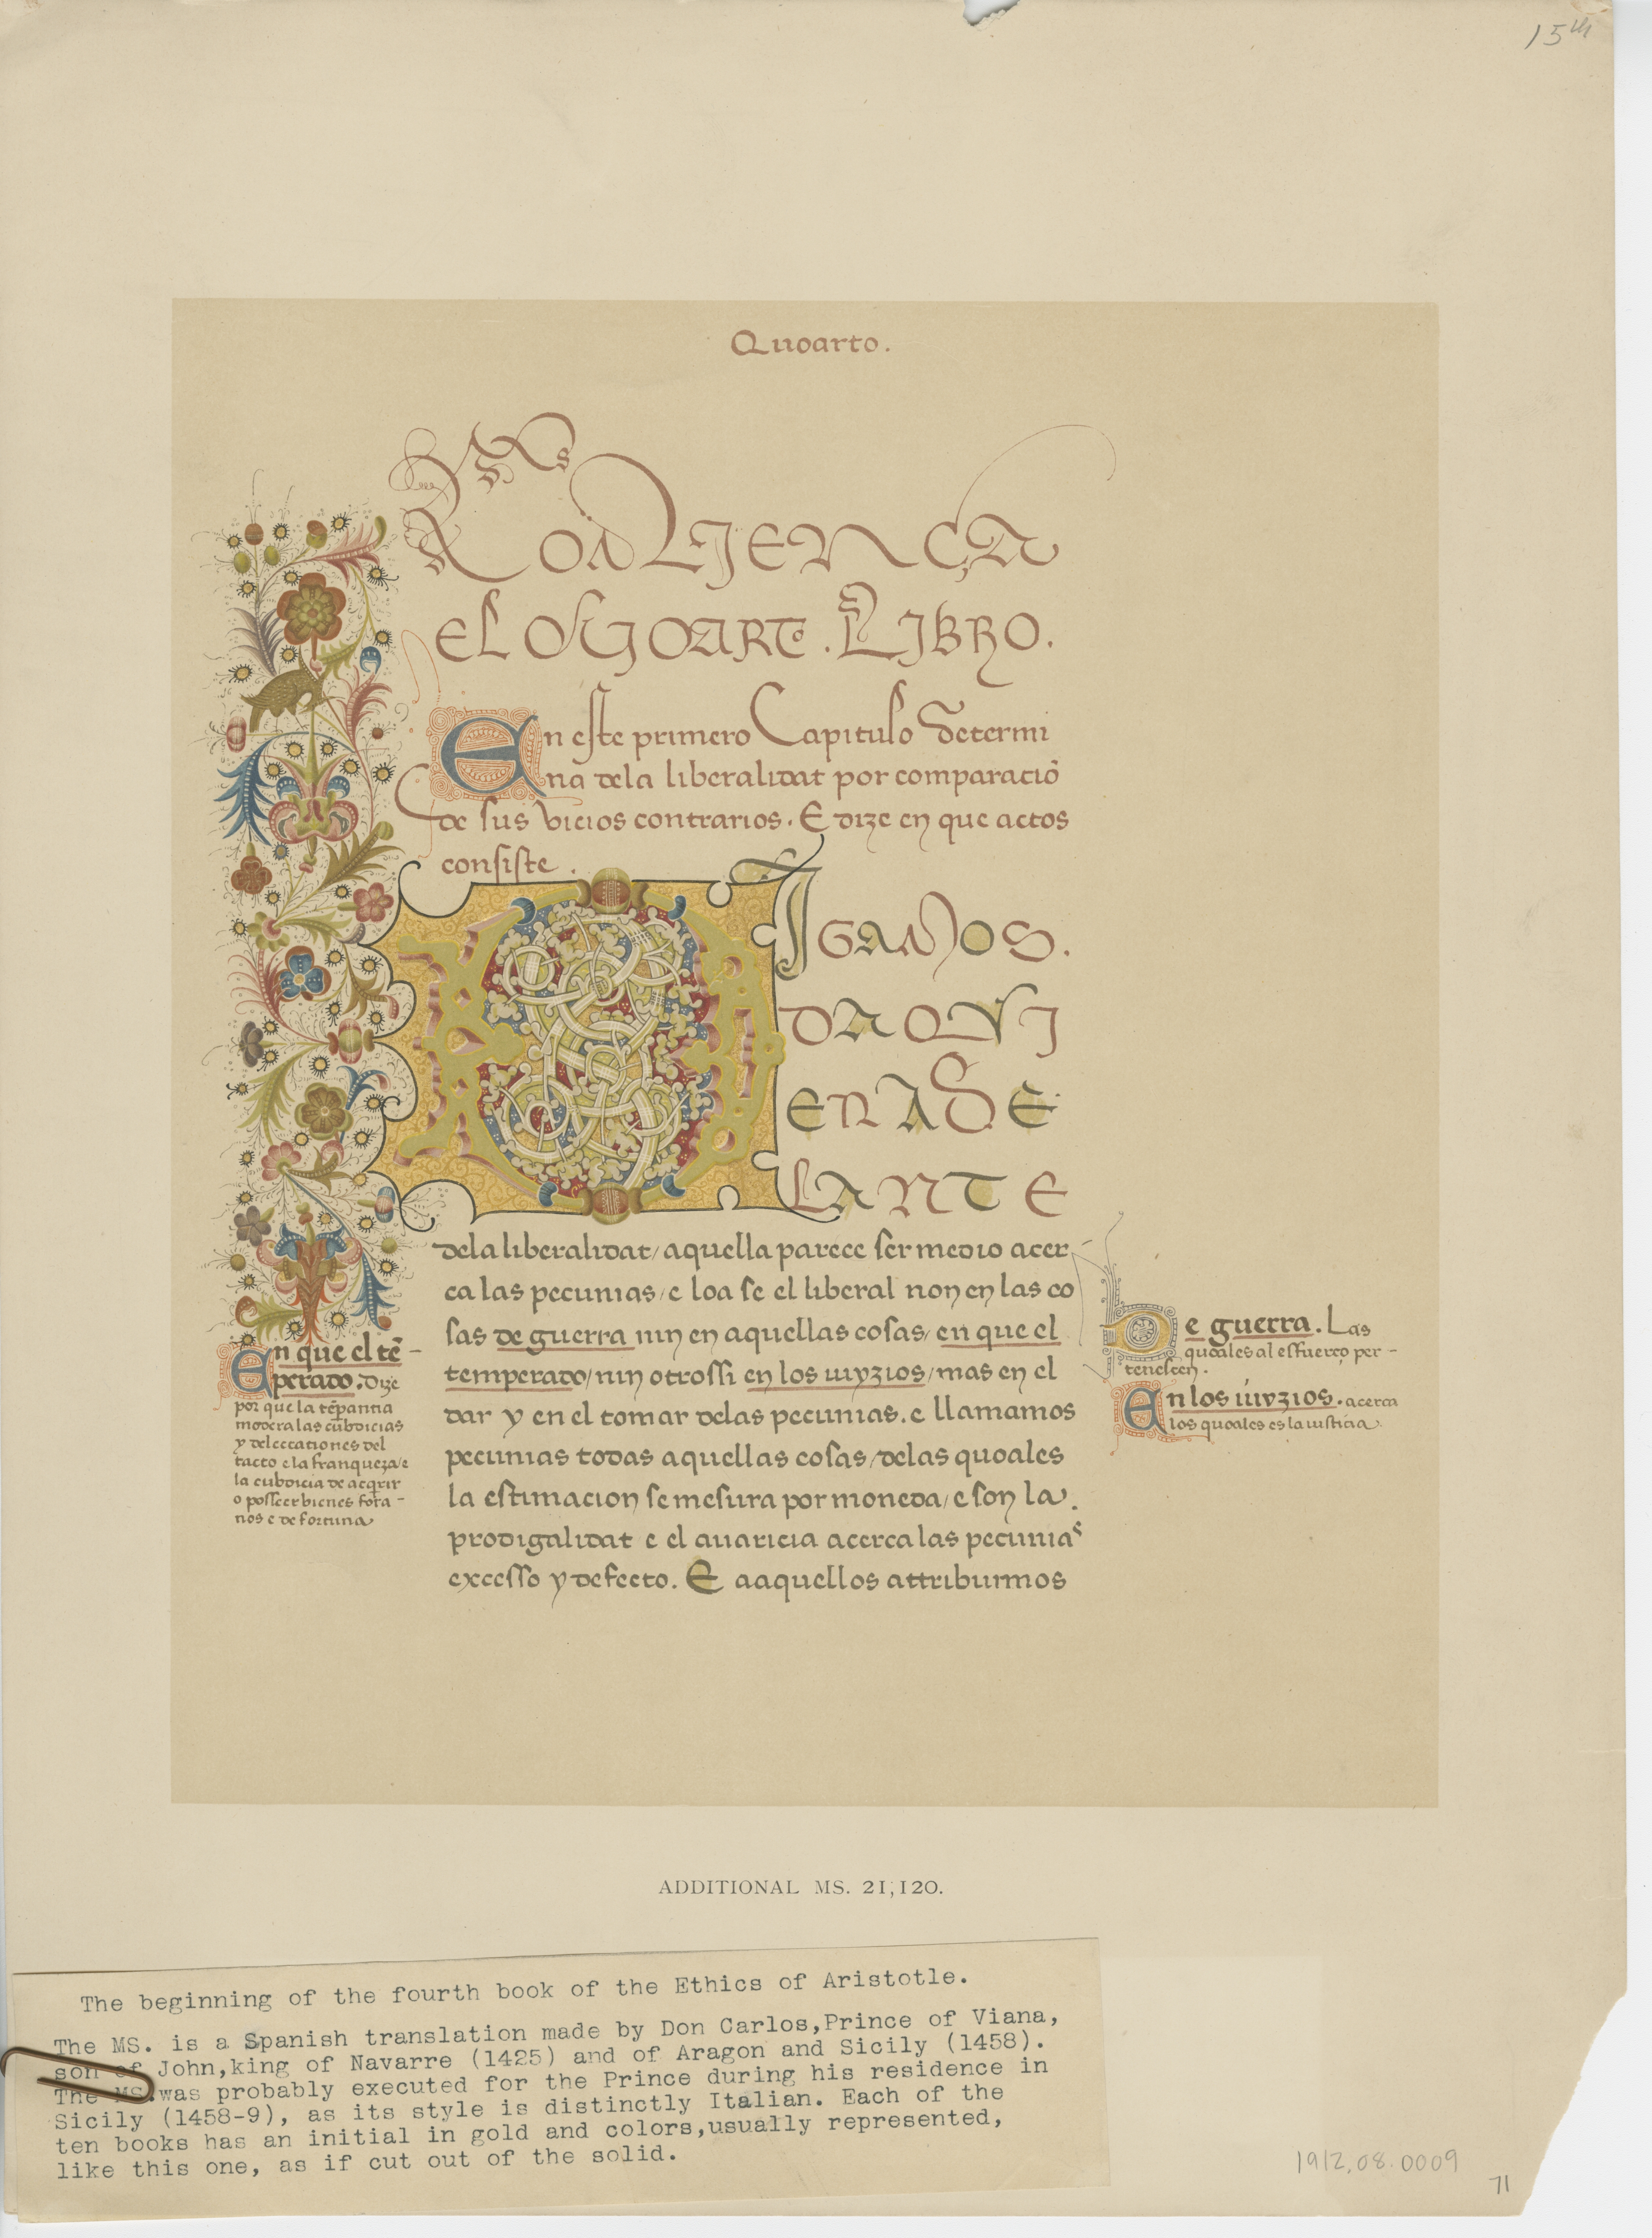 15th
Quoarto.
Comiença
el Quoarto. Libro.
En este primero Capitulo determi
na dela liberalidat por comparaciõ
de sus vicios contrarios. E dize en que actos
consiste.
DIGAMOS.
DAQVI
ENADE
LANTE
dela liberalidat/ aquella parece ser medio acer
ca las pecunias/ e loa se el liberal non en las co
sas de guerra nin en aquellas cosas/ en que el
temperado/ nin otrossi en los iuyzios/ mas en el
dar y en el tomar delas pecunias. e llamamos
pecunias todas aquellas cosas/ delas quoales
la estimacion se mesura por moneda/ e son la.
prodigalidat e el auaricia acerca las pecunias
excesso y defecto. E aaquellos attribuimos
En que el tē-
perado. Dize
por que la tēpantia
modera las cubdicias
y delectationes del
tacto e la franqueza/e
la cubdicia de acqrir
o posseer bienes fora-
nos e de fortuna
De guerra. Las
quoales al esfuerço per-
tenescen.
En los iuyzios. acerca
los quoales es la iusticia.
ADDITIONAL MS. 21,120.
The beginning of the fourth book of the Ethics of Aristotle.
The MS. is a Spanish translation made by Don Carlos,Prince of Viana,
son of John,king of Navarre (1425) and of Aragon and Sicily (1458).
The MS.was probably executed for the Prince during his residence in
Sicily (1458-9), as its style is distinctly Italian. Each of the
ten books has an initial in gold and colors,usually represented,
like this one, as if cut out of the solid.
1912.08.0009
71